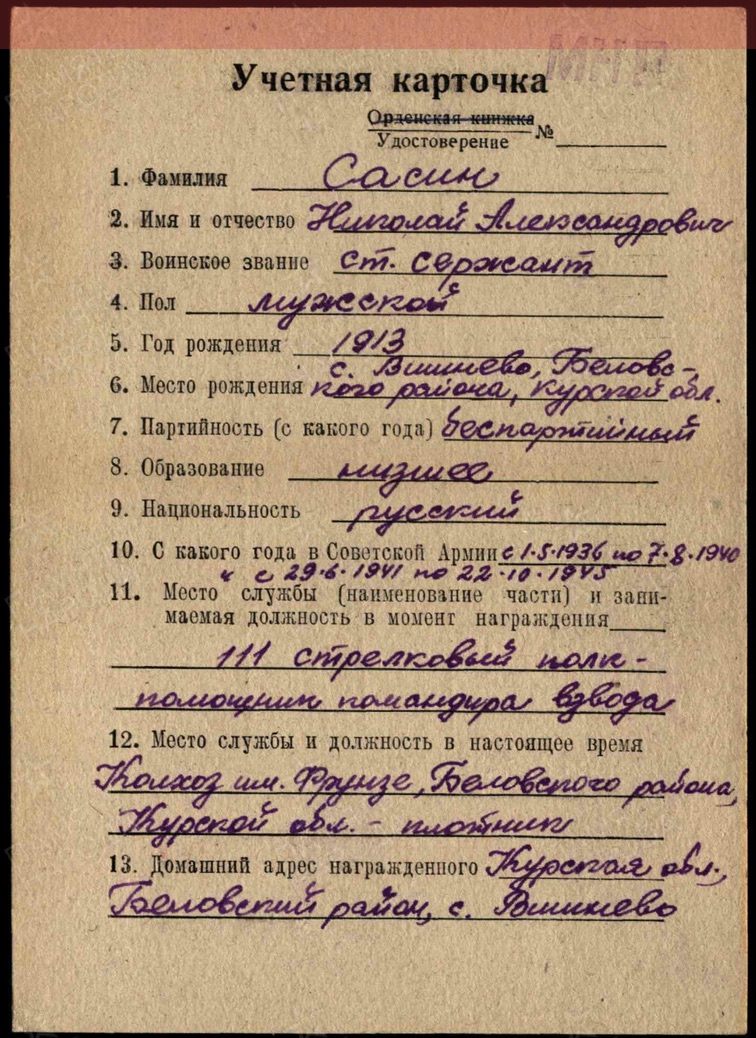 Учетная карточка
Орденская книжка
Удостоверение №
1. Фамилия Сасин
2. Имя и отчество Николай Александрович
3. Воинское звание ст. сержант
4. Пол мужской
5. Год рождения 1913
с. Вишнево, Беловс-
6. Место рождения кого района, Курской обл.
7. Партийность (с какого года) беспартийный
8. Образование низшее
9. Национальность русский
10. С какого года в Советской Армии с 1·5·1936 по 7·8·1940
и с 29·6·1941 по 22·10·1945
11. Место службы (наименование части) и зани-
маемая должность в момент награждения
111 стрелковый полк -
помощник командира взвода
12. Место службы и должность в настоящее время
Колхоз им. Фрунзе, Беловского района,
Курской обл. - плотник
13. Домашний адрес награжденного Курская обл.,
Беловский район, с. Вишнево